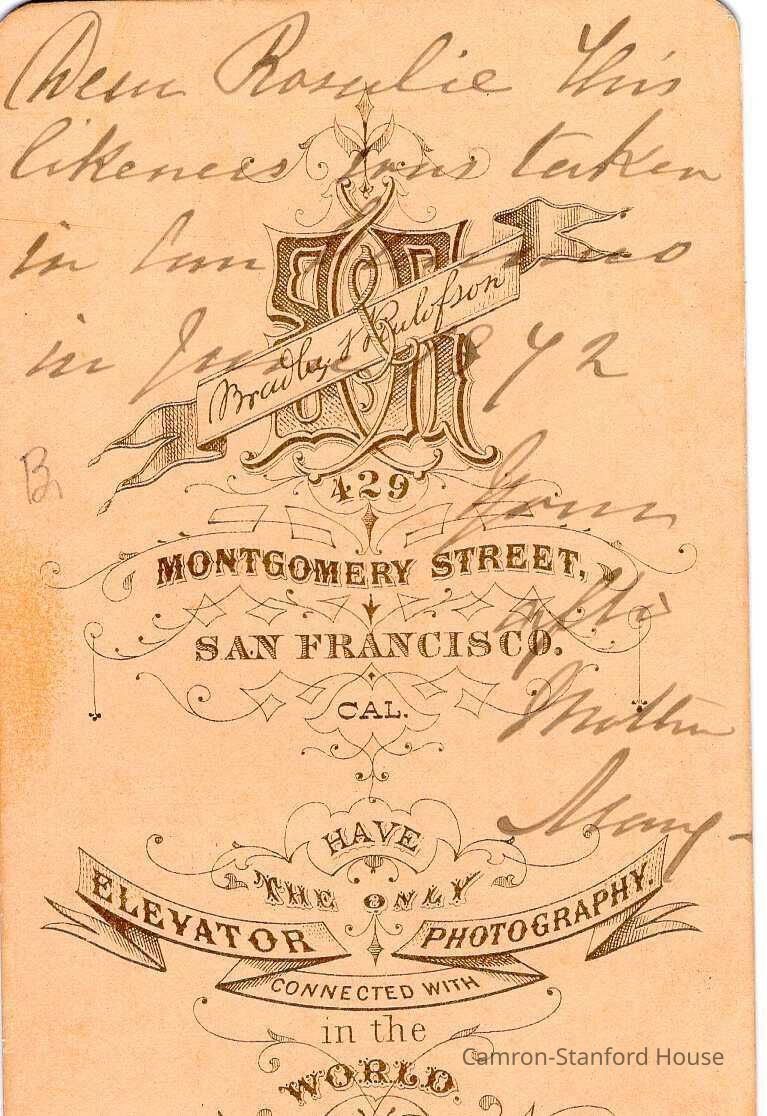 Dear Rosalie This
likeness was taken
in San Francisco
in June 1872
Bradley & Rulofson
B.
429
Your
MONTGOMERY STREET,
affte
SAN FRANCISCO.
CAL.
Mother
Mary -
HAVE
THE ONLY
ELEVATOR
CONNECTED WITH
PHOTOGRAPHY.
in the
WORLD.
Camron-Stanford House